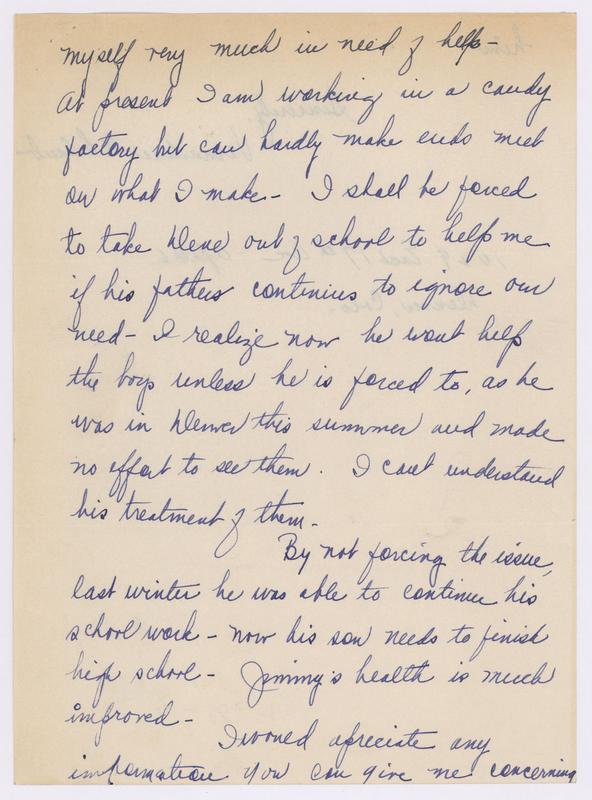 myself very much in need of help-
At present I am working in a candy
factory but can hardly make ends meet
on what I make- I shall be forced
to take Dene out of school to help me
if his fathers continius to ignore our
need- I realize now he wont help
the boys unless he is forced to, as he
was in Denver this summer and made
no effort to see them. I cant understand
his treatment of them-
By not forcing the issue,
last winter he was able to continue his
school work - now his son needs to finish
high school- Jimmy's health is much
improved-
I would apreciate any
information you can give me concerning